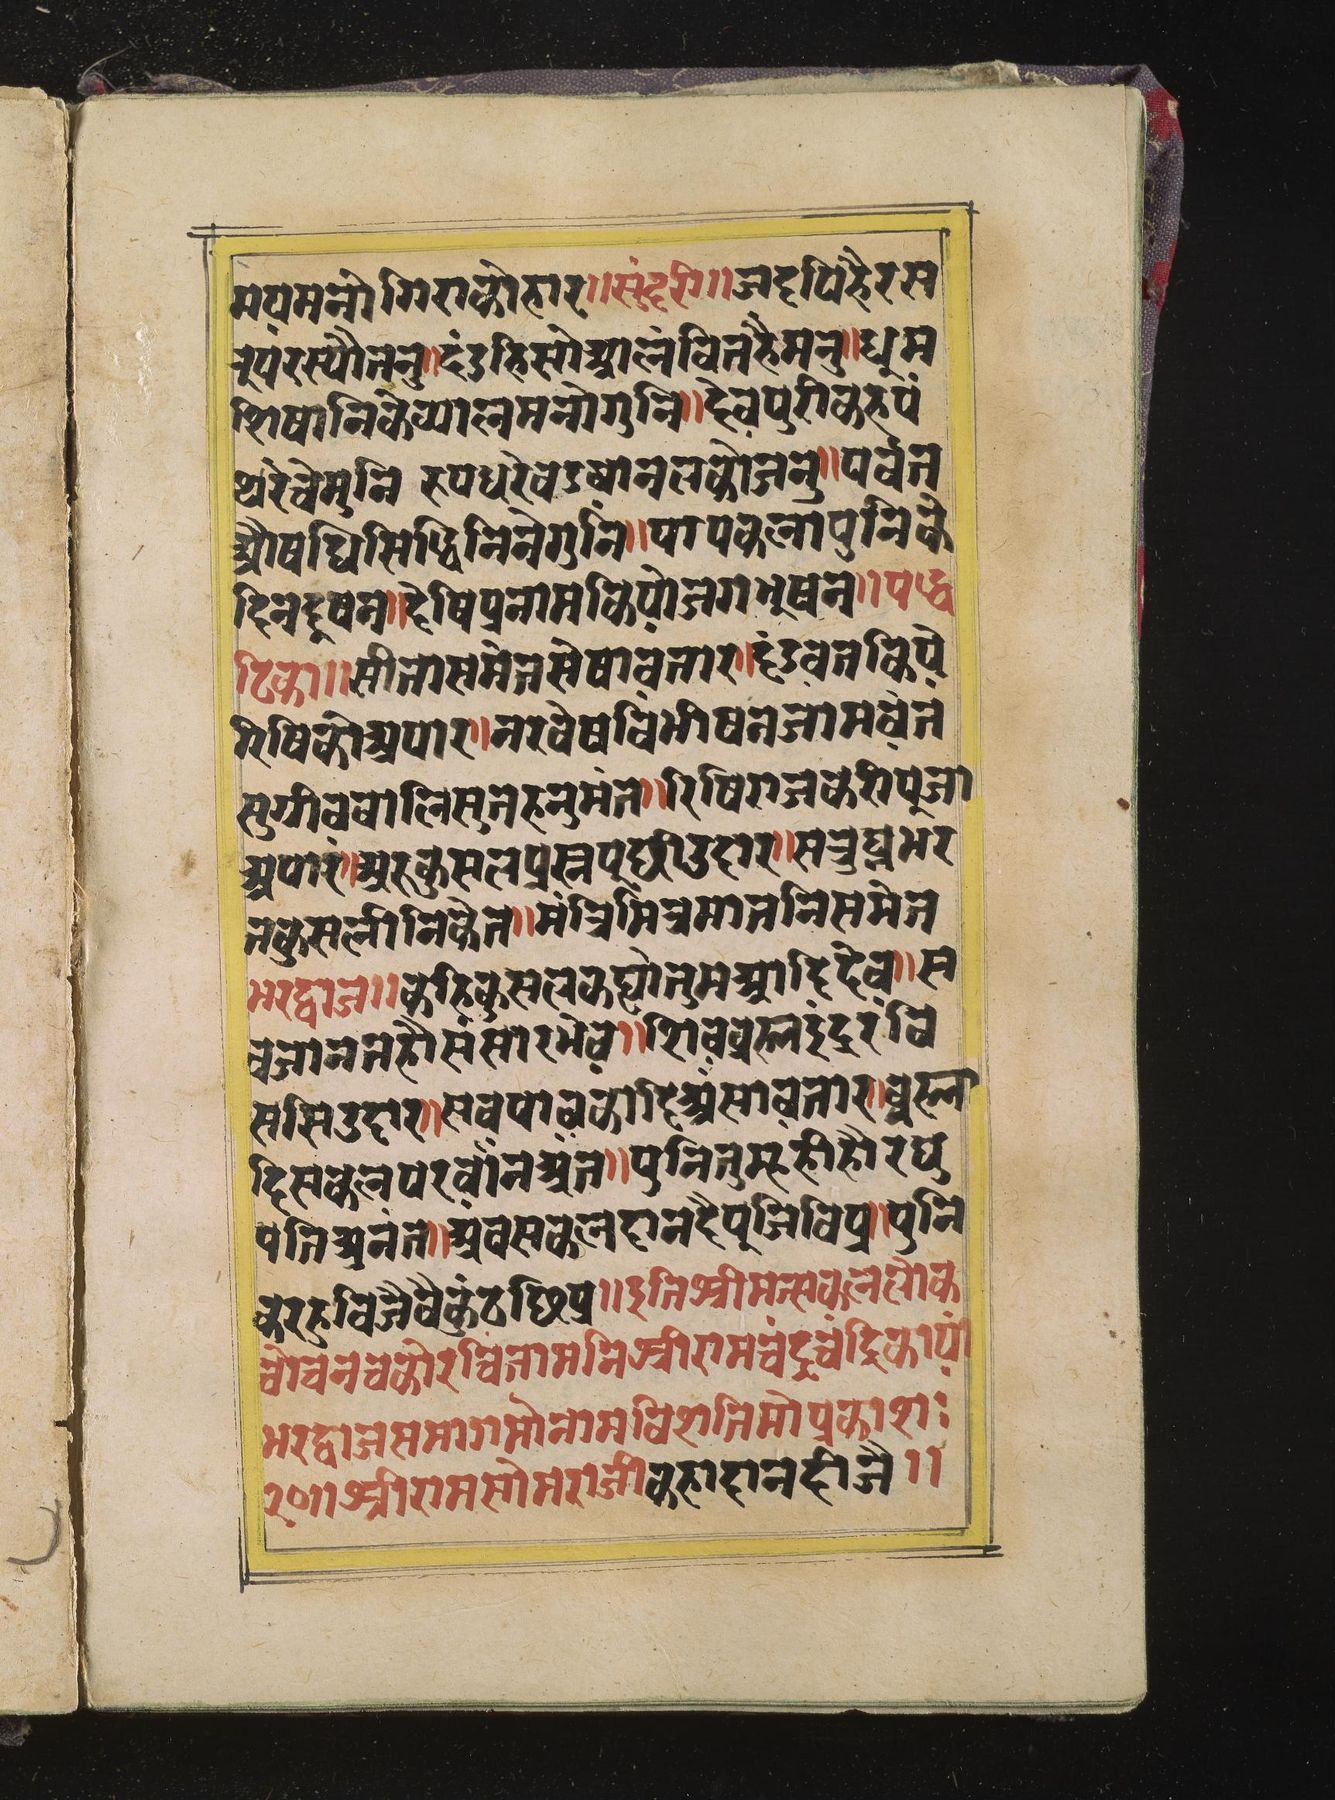 मय़मनो गिराकोहार॥सुंदरी॥जदपिहैरस
रूप़रस्यौतनु॥दंडहिसोआलंवितहैमनु॥धूम
शिषानिकेव्यालमनोगुनि॥देव़पुरीकहपं
थरचेमुनि रुपधरेवडवानलकोजनु॥पर्वत
औषधिसिद्धिनिनेगुनि॥पापकलापुनिके
दिनदूषन॥देषिप्रनामकिय़ोजगभूषन॥पद्ध
टिका॥सीतासमेतसेषाव़तार॥दंडव़तकिय़े
रिषिकोअपार॥नरवेषविभीषनजामव़ंत
सुग्रीव़वालिसुतहनुमंत॥रिषिराजकरीपूजा
अपार॥अरुकुसलप्रस्नपूछीउदार॥सत्रुघ्नभर
तकुसलीनिकेत॥मंत्रिमित्रमातनिसमेत
भरद्वाज॥कहिकुसलकहौतुमआदिदेव़॥स
वजानतहौसंसारभेव़॥शिव़व्रह्मइंद्ररवि
ससिउदार॥सवपाव़कादिअंसाव़तार॥व्रह्मा
दिसकलपरवांनअंत॥पुनितुमहीहौरघु
पतिअनंत॥अवसकलदानदैपूजिविप्र॥पुनि
करहुविजैवैकुंठछिप्र॥इतिश्रीमत्सकललोक
लोचनचकोरचिंतामनिश्रीरामचंद्रचंद्रिकाय़ां
भरद्वाजसमागमोनामविंशतिमोप्रकाशः
२०॥श्रीरामसोमराजीकहादानदीजै॥